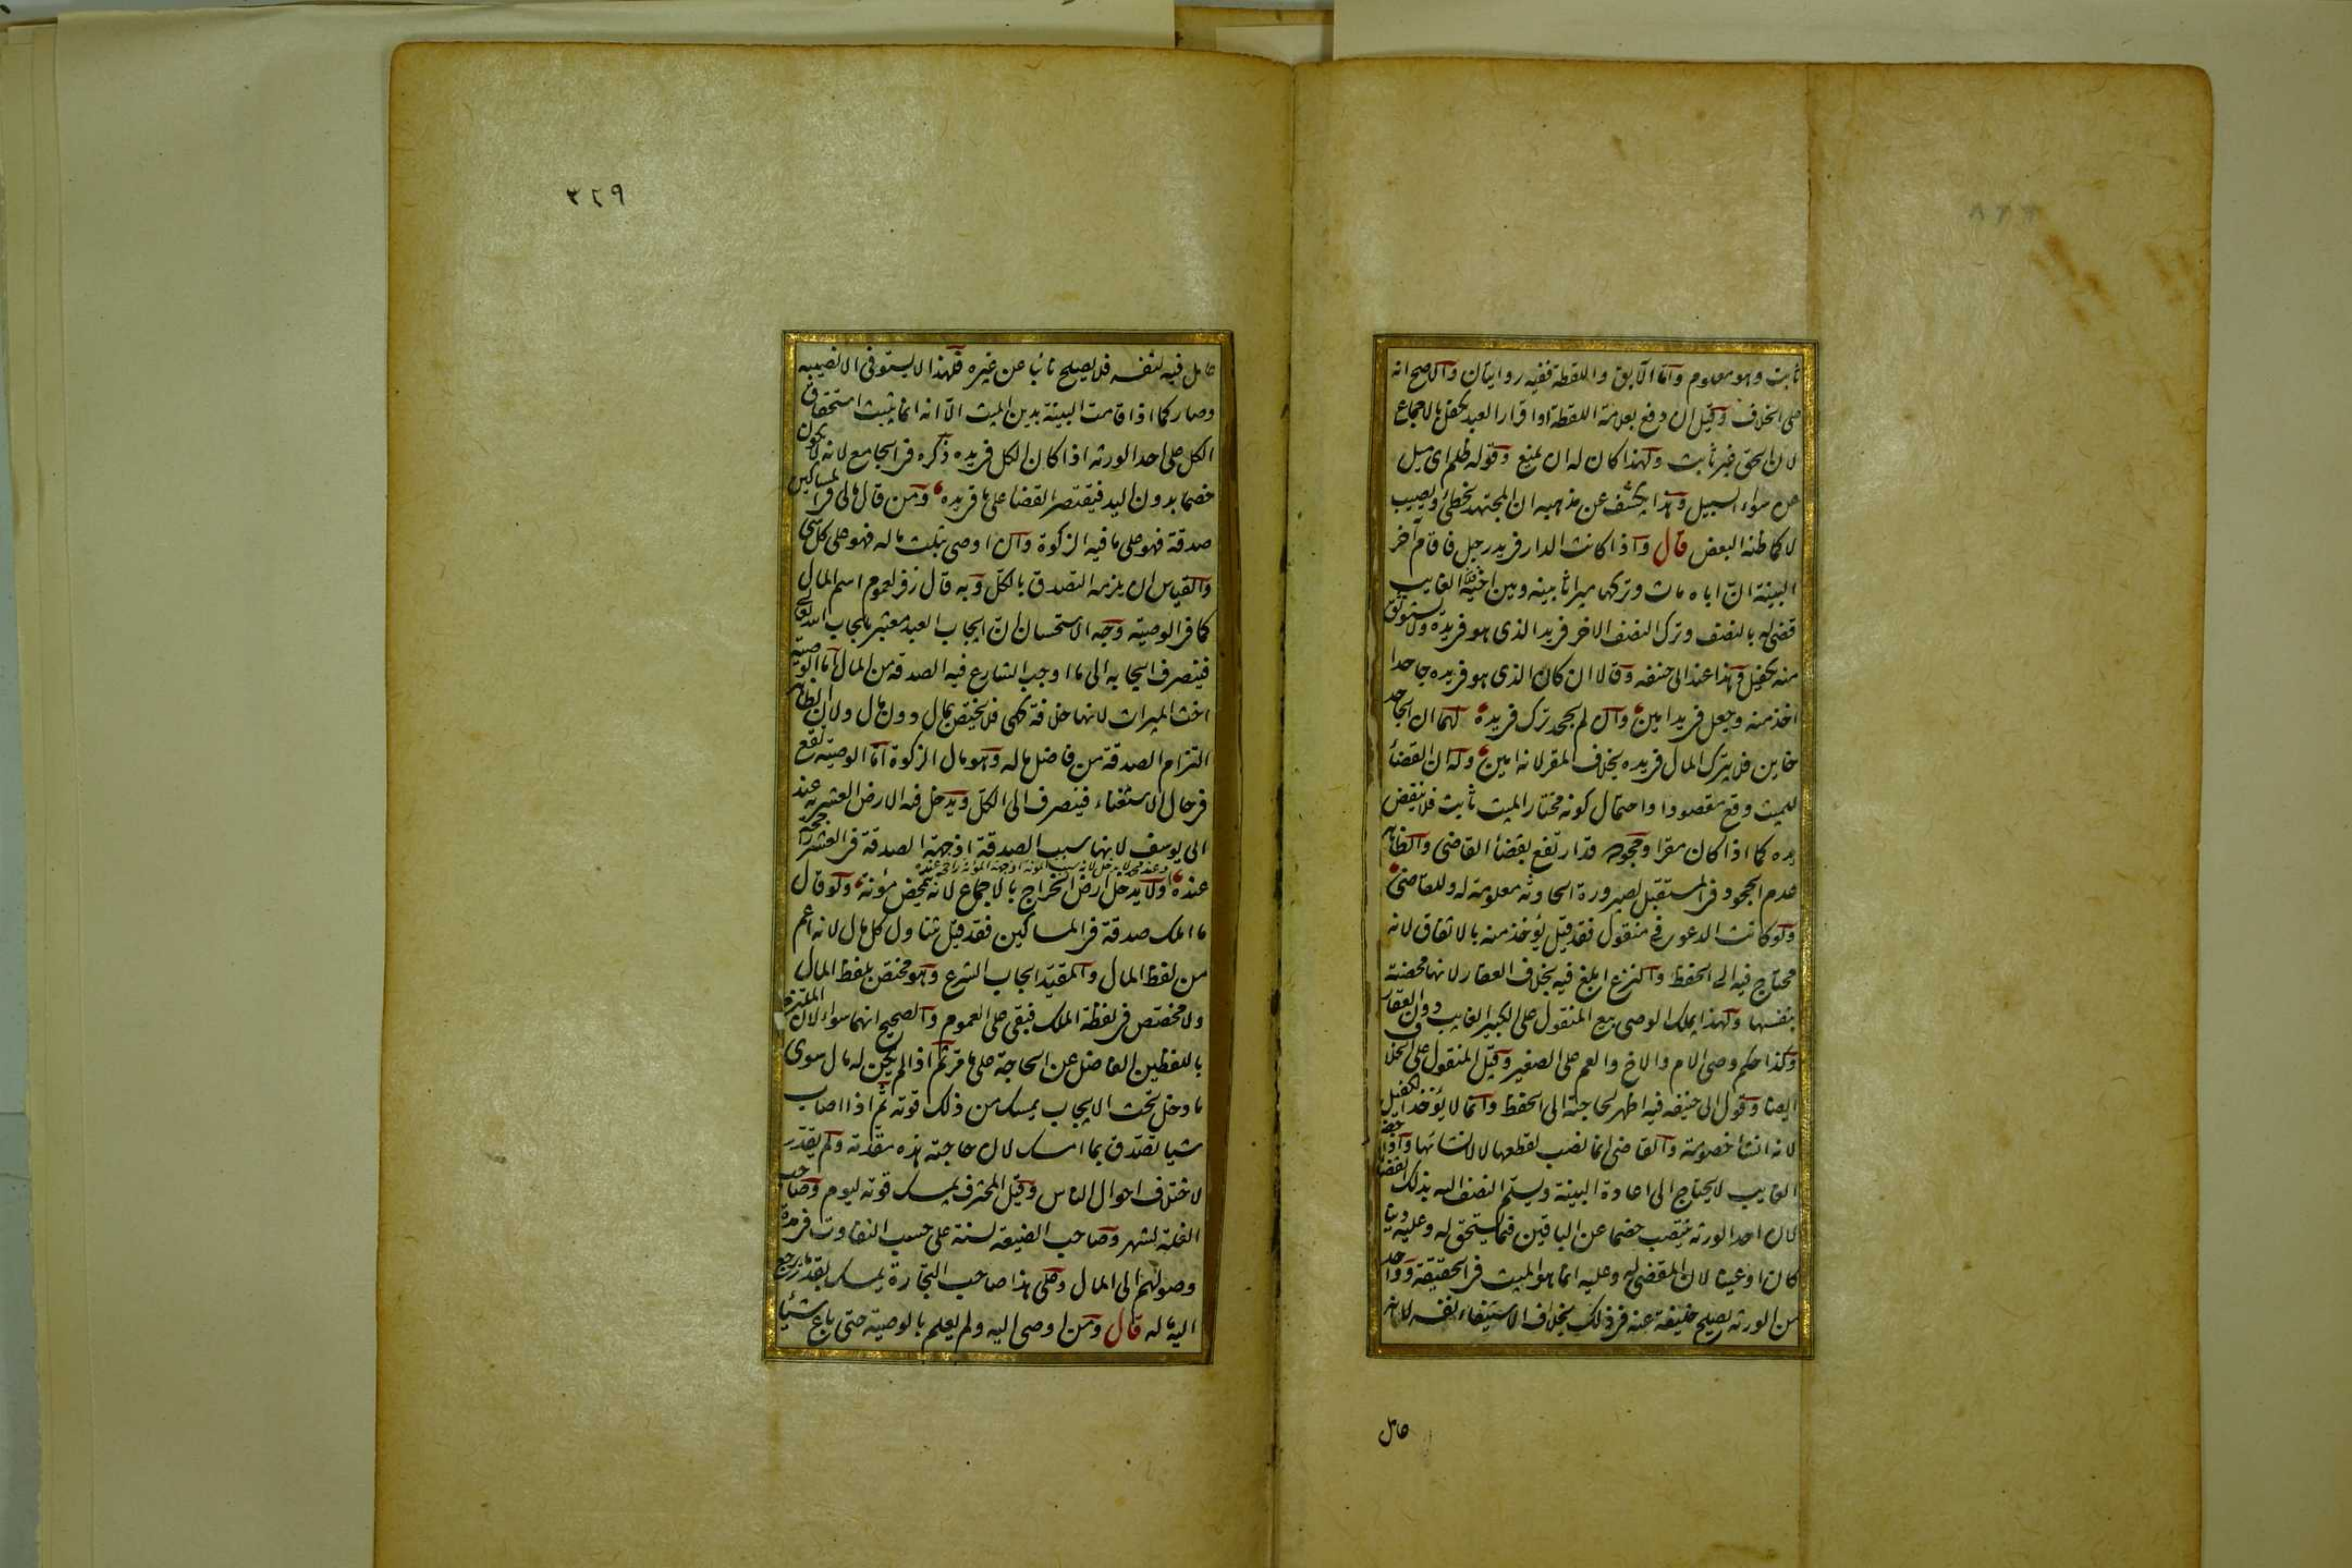 ثابت وهو معلوم واما الآبق واللقطة ففيه روايتان والاصح انه
على الخلاف وقيل ان دفع بعلامة اللقطة او اقرار العبد يكفل بالاجماع
لان الحق غير ثابت ولهذا كان له ان يمنع وقوله ظلم اى ميل
عن سواء السبيل وهذا يكشف عن مذهبه ان المجتهد يخطئ ويصيب
لا كما ظنه البعض قال واذا كانت الدار فى يد رجل فاقام آخر
البينة ان اباه مات وتركها ميراثا بينه وبين اخيه الغايب
قضى له بالنصف وترك النصف الاخر فى يد الذى هو فى يده ولا يستوثق
منه بكفيل وهذا عند ابى حنيفه وقالا ان كان الذى هو فى يده جاحدا
اخذ منه وجعل فى يد امين وان لم يجحد ترك فى يده لهما ان الجاحد
خاين فلا يترك المال فى يده بخلاف المقر لانه امين وله ان القضاء
للميت وقع مقصودا واحتمال كونه مختار الميت ثابت فلا ينقض
يده كما اذا كان مقرا وجحوده قد ارتفع بقضاء القاضى والظاهر
عدم الجحود فى المستقبل لصيرورة الحادثة معلومة له وللقاضى
ولو كانت الدعوى فى منقول فقد قيل يؤخذ منه بالاتفاق لانه
محتاج فيه الى الحفظ والنزع ابلغ فيه بخلاف العقار لانها محصنة
بنفسها ولهذا يملك الوصى بيع المنقول على الكبير الغايب دون العقار
وكذا حكم وصى الام والاخ والعم على الصغير وقيل المنقول على الخلاف
ايضا وقول ابى حنيفه فيه اظهر لحاجته الى الحفظ وانما لا يؤخذ الكفيل
لانه انشاء خصومة والقاضى انما نصب لقطعها لا لانشائها واذا حضر
الغايب لا يحتاج الى اعادة البينة ويسلم النصف اليه بذلك القضاء
لان احد الورثه ينتصب خصما عن الباقين فيما يستحق له وعليه دينا
كان او عينا لان المقضى له وعليه انما هو الميت فى الحقيقة وواحد
من الورثه يصلح خليفة عنه فى ذلك بخلاف الاستيفاء لنفسه لانه
عامل
٣٢٩
عامل فيه لنفسه فلا يصلح نائبا عن غيره فلهذا لا يستوفى الا نصيبه
وصار كما اذا قامت البينة بدين الميت الا انه انما يثبت استحقاق
الكل على احد الورثه اذا كان الكل فى يده ذكره فى الجامع لانه لا يكون
خصما بدون اليد فيقتصر القضاء على ما فى يده ومن قال مالى فى المساكين
صدقة فهو على ما فيه الزكوة وان اوصى بثلث ماله فهو على كل شى
والقياس ان يلزمه التصدق بالكل وبه قال زفر لعموم اسم المال
كما فى الوصية وجه الاستحسان ان ايجاب العبد معتبر بايجاب الله تعالى
فينصرف ايجابه الى ما اوجب الشارع فيه الصدقه من المال اما الوصية
اخت الميراث لانها خلافة كهى فلا يختص بمال دون مال ولان الظاهر
التزام الصدقة من فاضل ماله وهو مال الزكوة اما الوصية تقع
فى حال الاستغناء فينصرف الى الكل ويدخل فيه الارض العشرية عند
ابى يوسف لانها سبب الصدقة اذ جهة الصدقة فى العشر راجحة
وعند محمد لا يدخل لانه سبب المؤنه اذ جهة المؤنة راجحة عنده
عنده ولا يدخل ارض الخراج بالاجماع لانه يمحض مؤنة ولو قال
ما املك صدقة فى المساكين فقد قيل تناول كل مال لانه اعم
من لفظ المال والمقيد ايجاب الشرع وهو مختص بلفظ المال
ولا مخصص فى لفظة الملك فبقى على العموم والصحيح انهما سواء لان الملتزم
باللفظين الفاضل عن الحاجة على ما مر ثم اذا لم يكن له مال سوى
ما دخل تحت الايجاب يمسك من ذلك قوته ثم اذا اصاب
شيا تصدق بما امسك لان حاجته هذه مقدمة ولم يقدر
لاختلاف احوال الناس وقيل المحترف يمسك قوته ليوم وصاحب
الغلة لشهر وصاحب الضيعة لسنة على حسب التفاوت فى مدة
وصولهم الى المال وعلى هذا صاحب التجارة يمسك بقدر ما يرجع
اليه ماله قال ومن اوصى اليه ولم يعلم بالوصية حتى باع شيئا